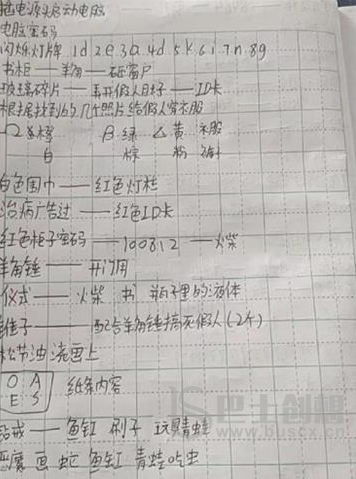 插电源头启动电脑
电脑密码
闪烁灯牌 1d 2e 3a 4d 5k 6i 7n 8g
书柜——羊角——砸窗户
玻璃碎片——弄开假人肚子——ID卡
根据找到的几张照片给假人穿衣服
绿 黄 衣服
白 棕 粉 裤
白色围巾——红色灯柱
治病广告过——红色ID卡
红色柜子密码——100812——火柴
羊角锤——开门用
仪式——火柴 书 瓶子里的液体
锥子——配合羊角锤搞死假人(2个)
松节油浇画上
O A
E S 纸条内容
鱼缸 刷子 玩具青蛙
恶魔 画 蛇 鱼缸 青蛙吃虫
巴士创想
bscx.cn